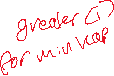 greater
for min heap